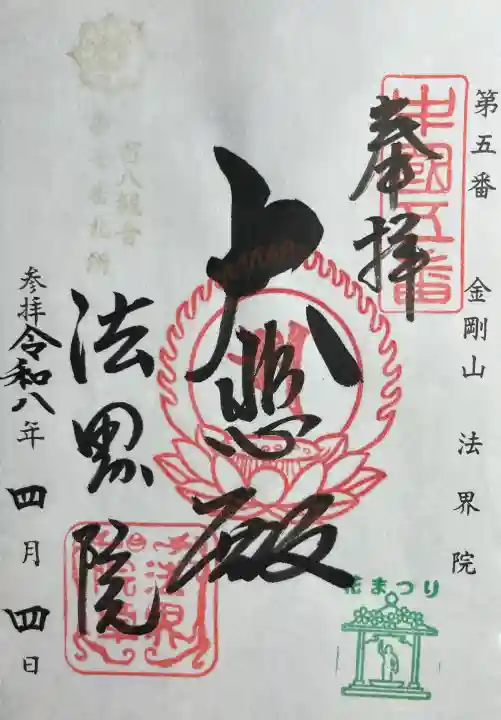 第五番 金剛山 法界院
中國五番
奉拝
大悲殿
法界院
百八観音
参拝令和八年四月四日
花まつり